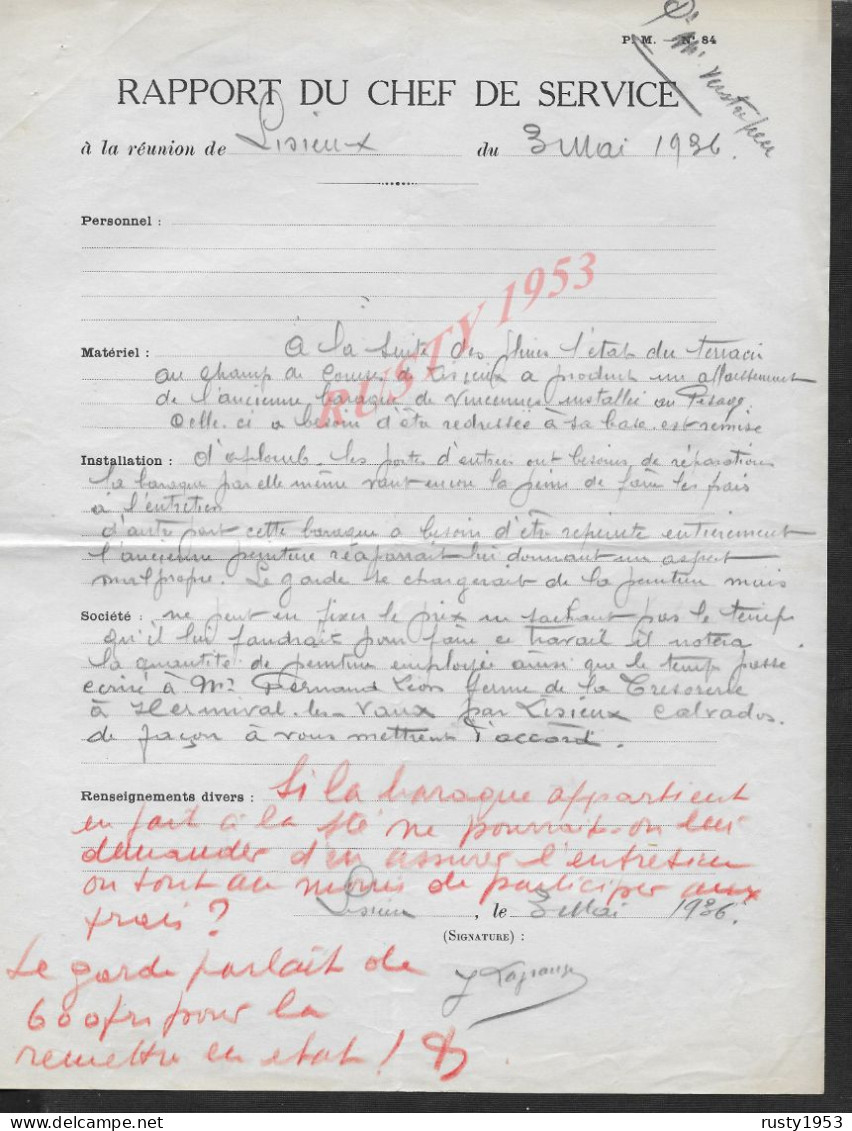 P. M. — N° 84
RAPPORT DU CHEF DE SERVICE
à la réunion de Lisieux du 3 Mai 1936.
Personnel :
RUSTY 1953
Matériel : à la suite des pluies l'état du terrain
au champ de courses de Lisieux a produit un affaissement
de l'ancienne baraque de Vincennes installée au Pesage.
Celle-ci a besoin d'être redressée à sa base et remise
Installation : d'aplomb. les portes d'entrées ont besoins de réparations
la baraque par elle même vaut encore la peine de faire les frais
à l'entretien
d'autre part cette baraque a besoin d'être repeinte entièrement
l'ancienne peinture réaparrait lui donnant un aspect
malpropre. Le garde se chargerait de la peinture mais
Société : ne peut en fixer le prix ne sachant pas le temps
qu'il lui faudrait pour faire ce travail il notera
la quantité de peinture employée ainsi que le temps passé
ecrire à Mr Fernand Léon ferme de la Tresorerie
à Hermival-les-Vaux par Lisieux Calvados.
de façon à vous mettre d'accord.
Renseignements divers : Si la baraque appartient
en fait à la Sté ne pourrait-on leur
demander d'en assurer l'entretien
ou tout au moins de participer aux
frais ?
Lisieux, le 3 Mai 1936.
(SIGNATURE) :
Le garde parlait de
600frs pour la
remettre en état !
rusty1953